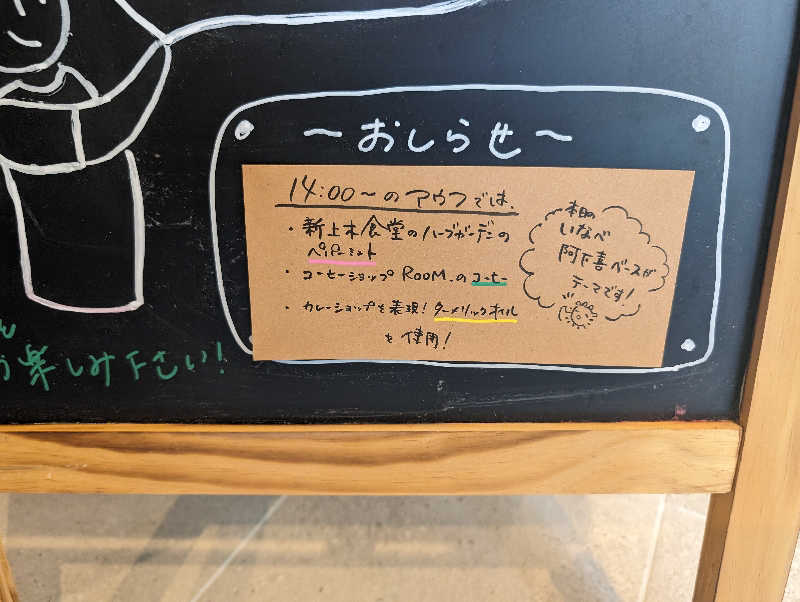 ～おしらせ～
14:00～のアウフでは、
・新上木食堂のハーブガーデンの
ペパーミント
・コーヒーショップROOM.のコーヒー
・カレーショップを表現！ターメリックオイル
を使用！
本日の
いなべ
阿下喜ベースが
テーマです！
楽しみ下さい！